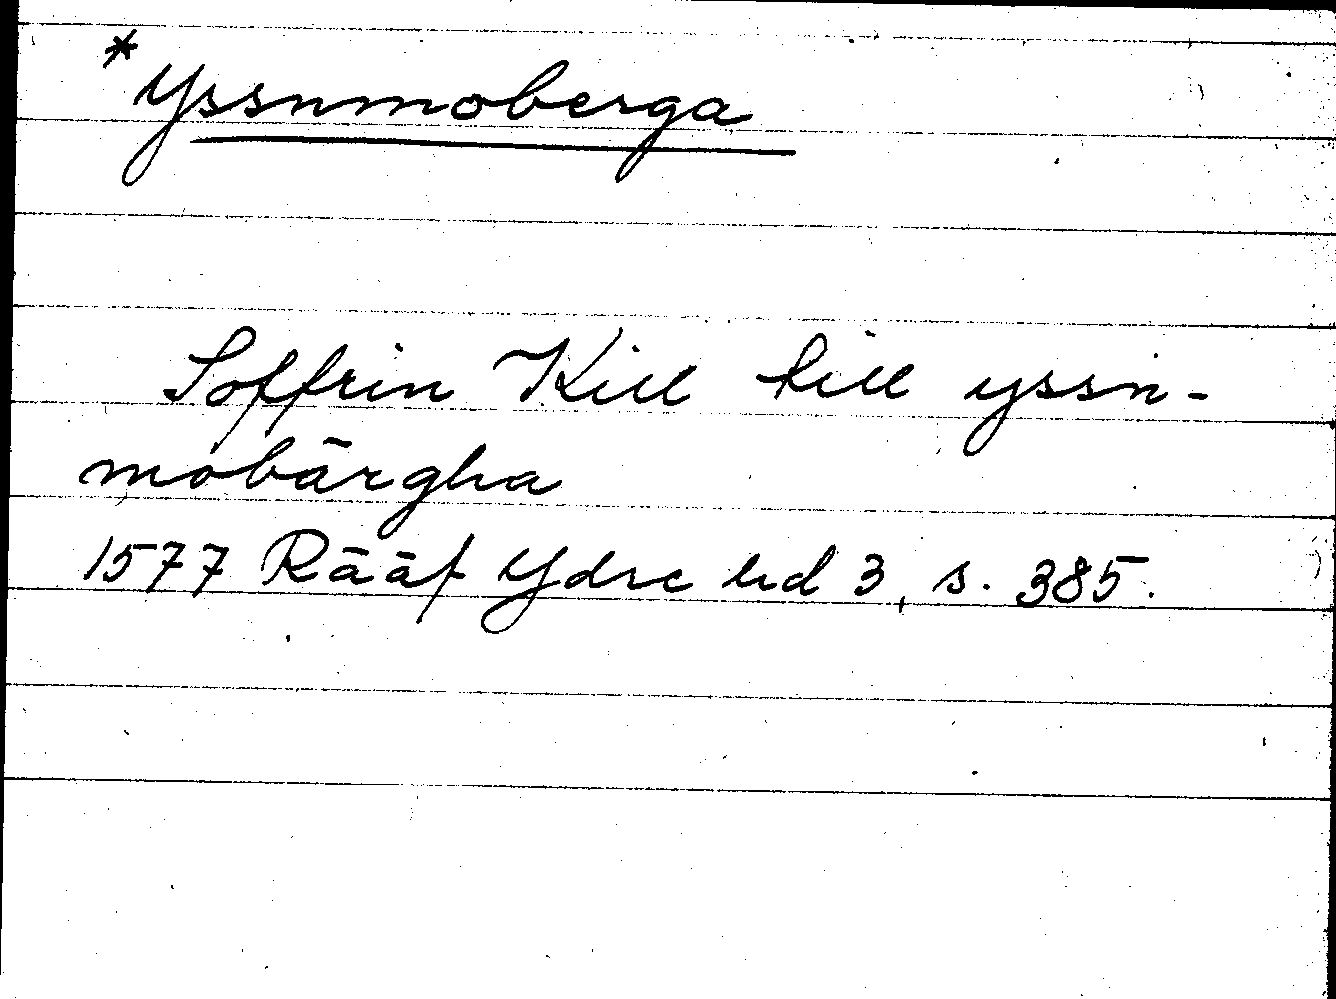 *Yssnmoberga
Soffrin Kill till yssn-
mobärgha
1577 Rääf Ydre hd 3, s. 385.